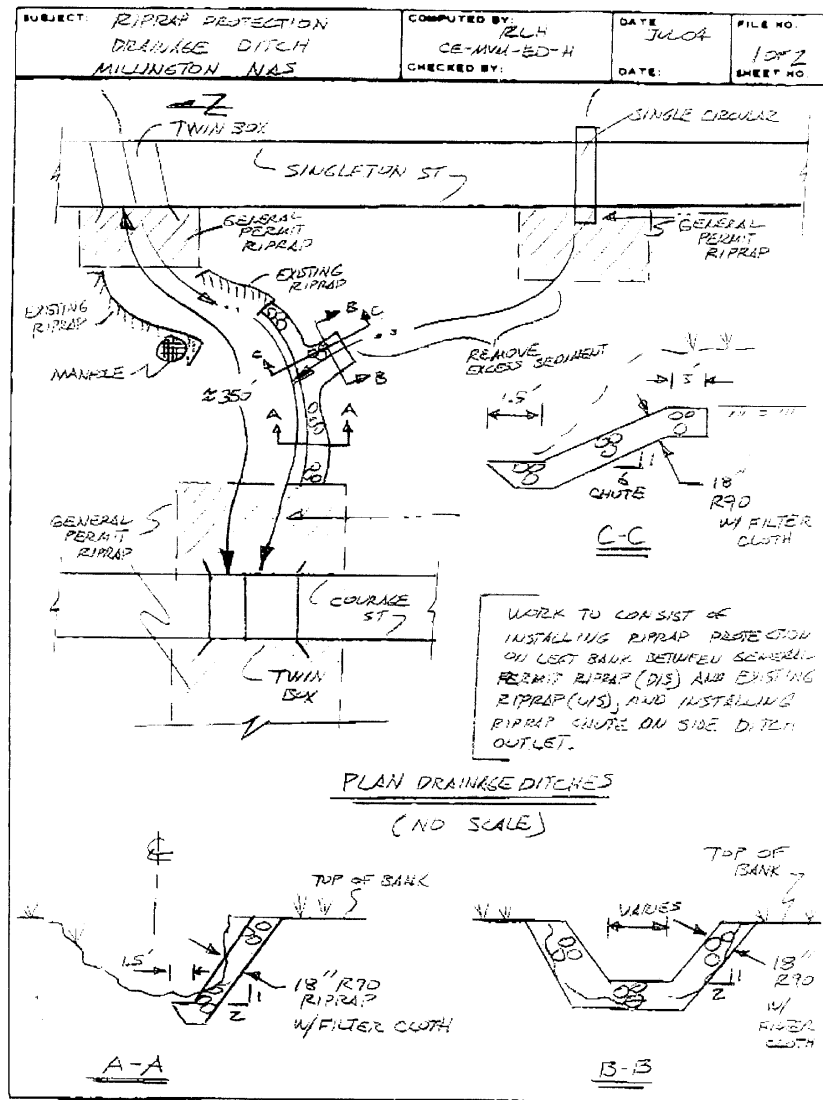 SUBJECT: RIPRAP PROTECTION
DRAINAGE DITCH
MILLINGTON NAS
COMPUTED BY: RLH
CE-MVM-ED-H
CHECKED BY:
DATE JUL04
DATE:
FILE NO.
1 OF 2
SHEET NO.
Z
TWIN BOX
SINGLE CIRCULAR
SINGLETON ST
GENERAL
PERMIT
RIPRAP
GENERAL
PERMIT
RIPRAP
EXISTING
RIPRAP
EXISTING
RIPRAP
MANHOLE
B
C
C
B
REMOVE
EXCESS SEDIMENT
≈350'
A
A
1.5'
3'
6
1
CHUTE
18"
R90
W/ FILTER
CLOTH
C-C
GENERAL
PERMIT
RIPRAP
COURAGE
ST
TWIN
BOX
WORK TO CONSIST OF
INSTALLING RIPRAP PROTECTION
ON LEFT BANK BETWEEN GENERAL
PERMIT RIPRAP (D/S) AND EXISTING
RIPRAP (U/S), AND INSTALLING
RIPRAP CHUTE ON SIDE DITCH
OUTLET.
PLAN DRAINAGE DITCHES
(NO SCALE)
℄
TOP OF BANK
1.5'
1
2
18" R90
RIPRAP
W/FILTER CLOTH
A-A
TOP OF
BANK
VARIES
1
2
18"
R90
W/
FILTER
CLOTH
B-B